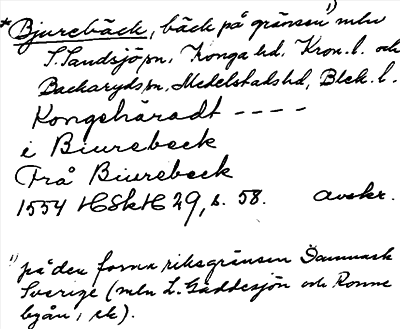 *Bjurebäck, bäck på gränsen 1) mln
S. Sandsjö sn, Konga hd, Kron. l. och
Backaryds sn, Medelstads hd, Blek. l.
Kongshäradt ----
i Biurebeck
Frå Biurebeck
1554 HSkH 29, s. 58. avskr.
1) på den forna riksgränsen Danmark
Sverige (mln L. Gäddesjön och Ronne
byån, ek).